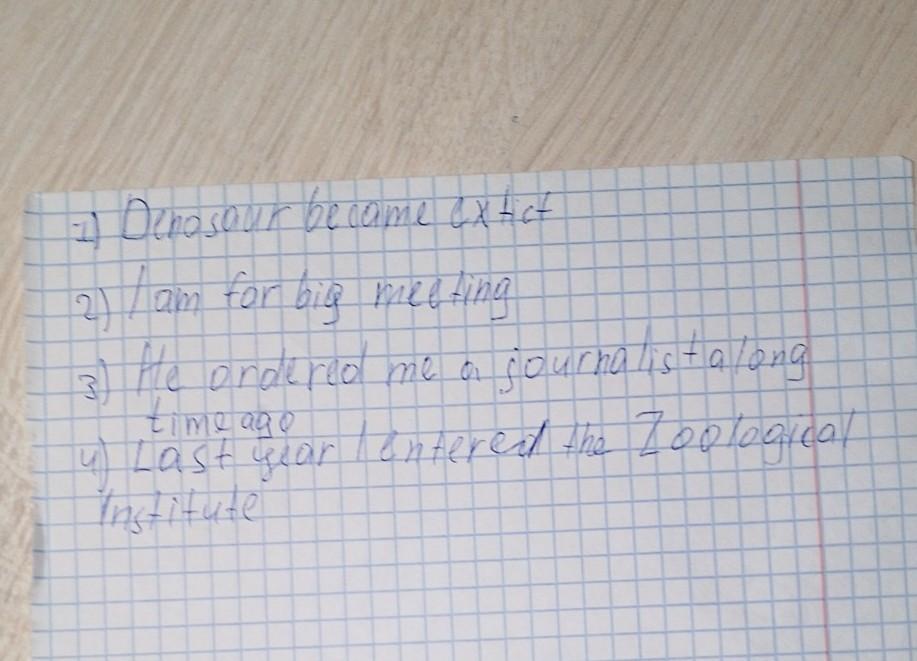 1) Denosaur became extict
2) I am for big meeting
3) He ordered me a journalist a long
time ago
4) Last year I entered the Zoological
Institute